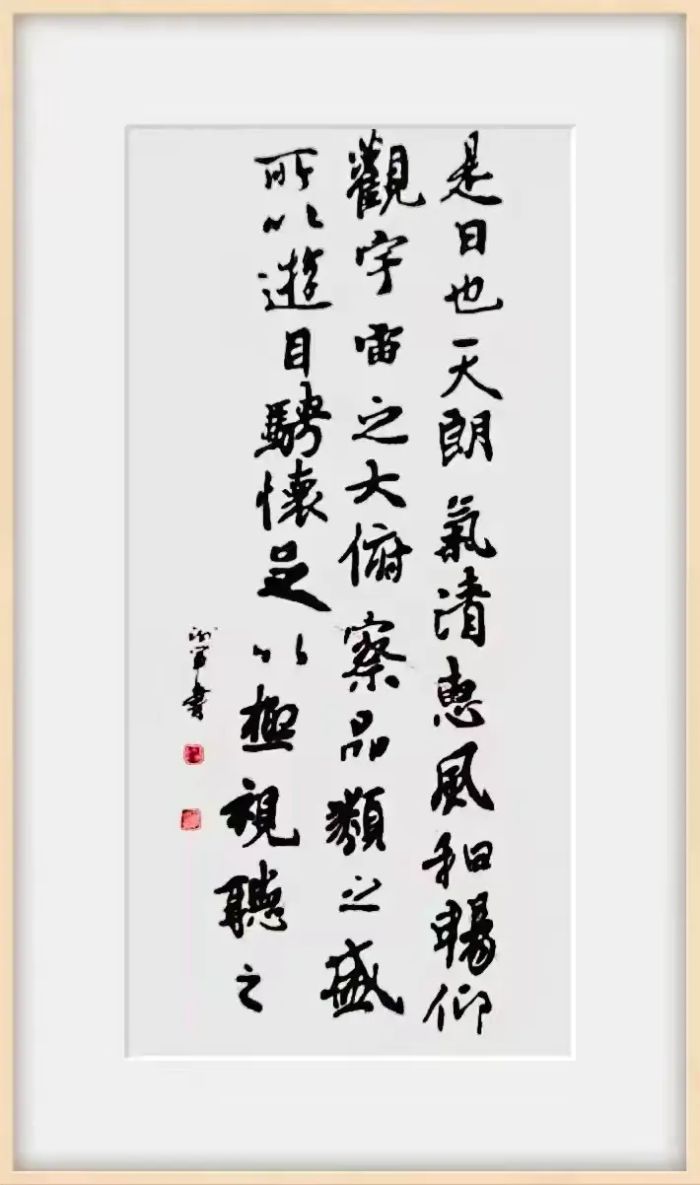 是日也天朗氣清惠風和暢仰
觀宇宙之大俯察品類之盛
所以遊目騁懷足以極視聽之
書